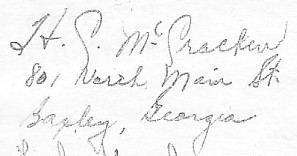 H. C. McCracken
801 North Main St.
Baxley, Georgia